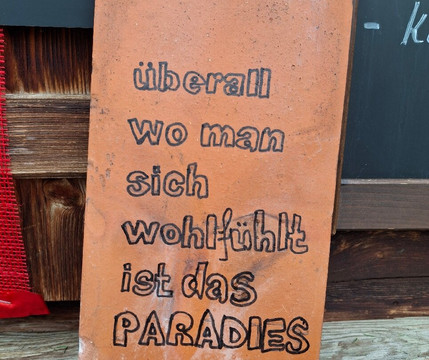 überall
wo man
sich
wohlfühlt
ist das
PARADIES